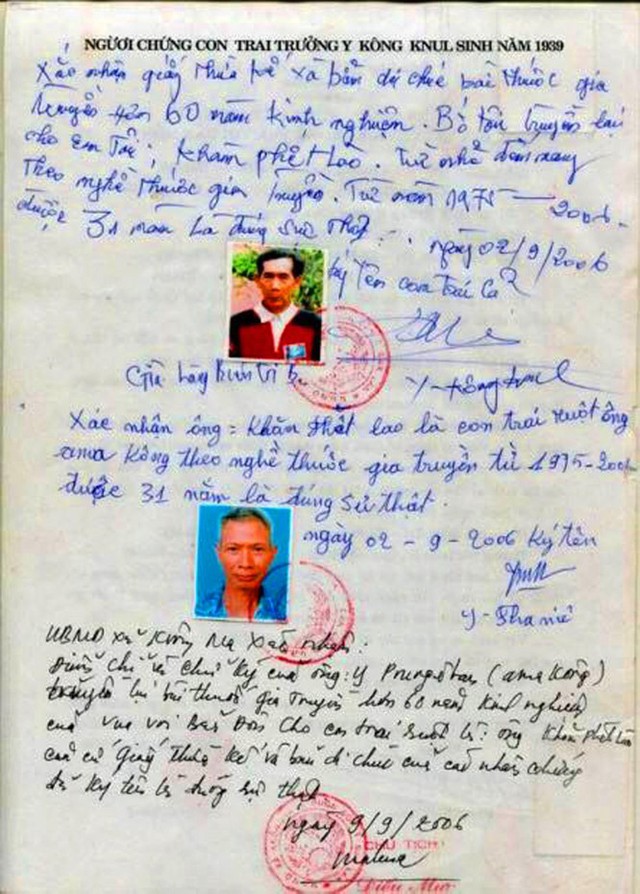 NGƯƠI CHỨNG CON TRAI TRƯỞNG Y KÔNG KNUL SINH NĂM 1939
Xác nhận giấy thừa kế và bản di chúc bài thuốc gia
truyền hơn 60 năm kinh nghiệm. Bố tôi truyền lại
cho em Tôi; Khăm phết Lào. Từ nhỏ đến nay
Theo nghề thuốc gia truyền. Từ năm 1975 — 2006.
được 31 năm Là đúng sự thật. ngày 02/9/2006
ký Tên con trai cả
Già làng buôn trí b
Y-Kông knul
Xác nhận ông: Khăm phết lao là con trai ruột ông
ama Kông theo nghề thuốc gia truyền từ 1975-2006
được 31 năm là đúng sử thật.
ngày 02 - 9 - 2006 Ký tên
Y-Pha niê
UBND xã Krông Na Xác nhận:
chữ ký của ông: Y Prung Êban (ama Kông)
truyền lại bài thuốc gia truyền hơn 60 năm kinh nghiệm
của vua voi Bản Đôn cho con trai ruột là: ông Khăm phết Lào
căn cứ giấy thừa kế và bản di chúc của các nhân chứng
đã ký tên là đúng sự thật
ngày 9/9/2006
CHỦ TỊCH